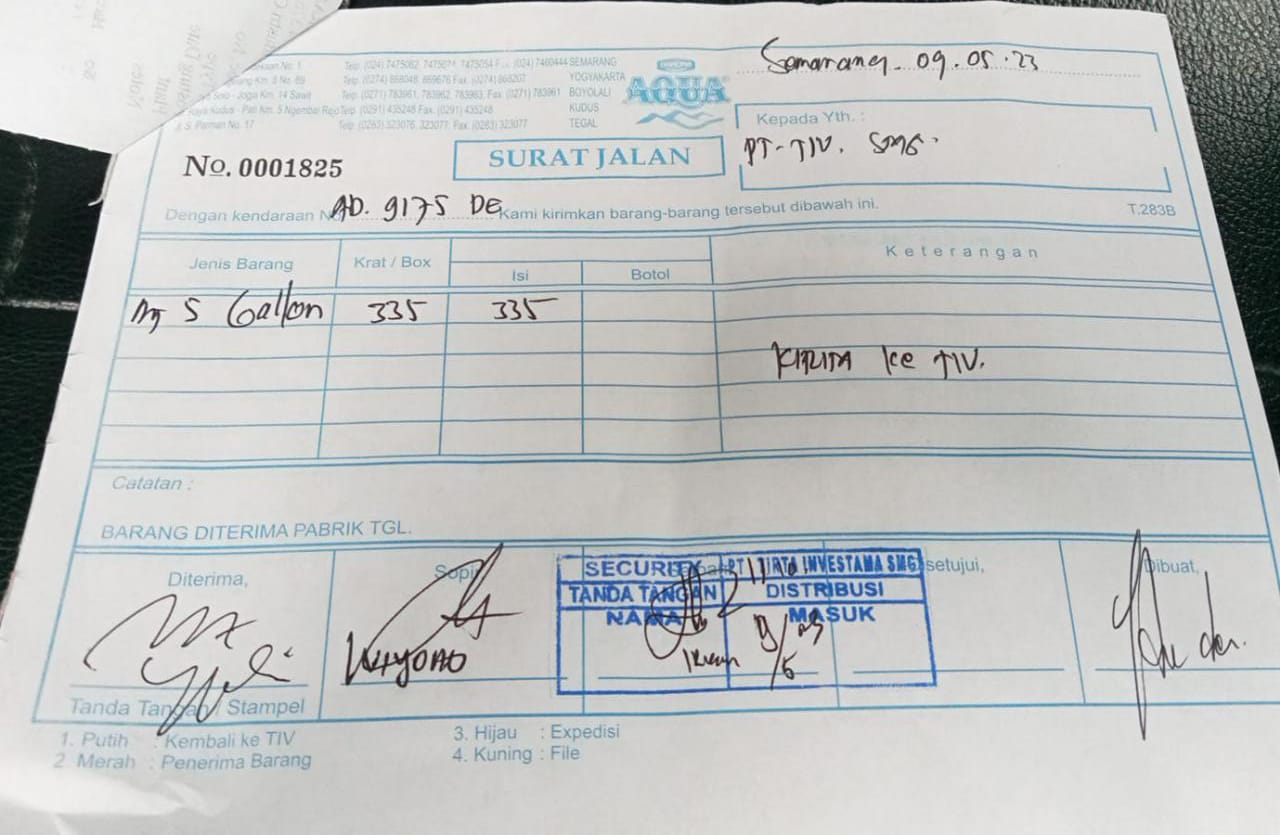 Telp. (024) 7475082, 7475074, 7475054 F.. (024) 7460444 SEMARANG
Km. 8 No. 69 Telp. (0274) 868048, 869676 Fax. (0274) 868207 YOGYAKARTA
Solo - Jogja Km. 14 Sawit Telp. (0271) 783961, 783962, 783963, Fax. (0271) 783961 BOYOLALI
Kudus - Pati Km. 5 Ngembal Rejo Telp. (0291) 435248 Fax. (0291) 435248 KUDUS
S. Parman No. 17 Telp. (0283) 323076, 323077, Fax. (0283) 323077 TEGAL
AQUA
Semarang. 09.05.23
Kepada Yth. :
PT-TIV. SMG.
No. 0001825
SURAT JALAN
Dengan kendaraan No AD. 9175 DE Kami kirimkan barang-barang tersebut dibawah ini.
T.283B
Jenis Barang Krat / Box Isi Botol Keterangan
5 Gallon 335 335
ke TIV.
Catatan :
BARANG DITERIMA PABRIK TGL.
Diterima, Sopir setujui, Dibuat,
SECURITY PT TIRTA INVESTAMA SMG
TANDA TANGAN DISTRIBUSI
NAMA MASUK
WIYONO
Tanda Tangan / Stampel
1. Putih : Kembali ke TIV
2. Merah : Penerima Barang
3. Hijau : Expedisi
4. Kuning : File